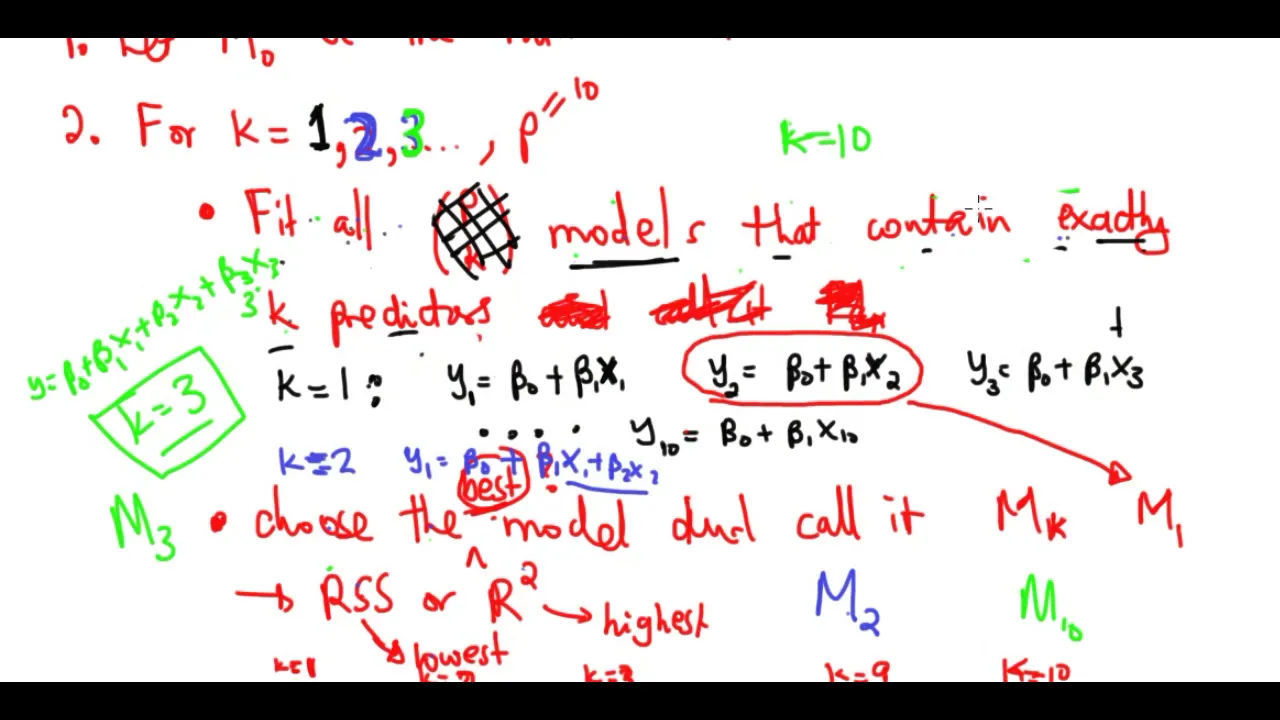 2. For k = 1, 2, 3 ..., p = 10
k = 10
• Fit all models that contain exactly
k predictors
y = β₀ + β₁x₁ + β₂x₂ + β₃x₃
3
k = 3
k = 1 : y₁ = β₀ + β₁x₁ y₂ = β₀ + β₁x₂ y₃ = β₀ + β₁x₃
.... y₁₀ = β₀ + β₁x₁₀
k = 2 y₁ = β₀ + β₁x₁ + β₂x₂
best
M₃ • choose the ^ model call it Mk M₁
→ RSS or R² → highest M₂ M₁₀
lowest
k=1 k=3 k=9 k=10